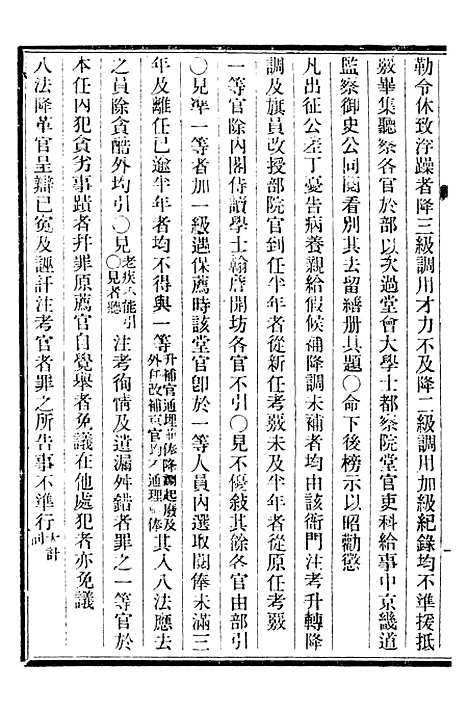 勒令休致浮躁者降三級調用才力不及降二級調用加級紀錄均不準援抵
覈畢集聽察各官於部以次過堂會大學士都察院堂官吏科給事中京畿道
監察御史公同閱看別其去留繕册具題〇命下後榜示以昭勸懲
凡出征公差丁憂告病養親給假候補降調未補者均由該衙門注考升轉降
調及旗員改授部院官到任半年者從新任考覈未及半年者從原任考覈
一等官除內閣侍讀學士翰詹開坊各官不引〇見不優敍其餘各官由部引
〇見準一等者加一級遇保薦時該堂官卽於一等人員內選取閱俸未滿三
年及離任已逾半年者均不得與一等升補官通理前俸降調起廢及外任改補京官均不通理前俸其入八法應去
之員除貪酷外均引〇見老疾不能引〇見者聽注考徇情及遺漏舛錯者罪之一等官於
本任內犯貪劣事蹟者幷罪原薦官自覺舉者免議在他處犯者亦免議
八法降革官呈辯已冤及誣訐注考官者罪之所告事不準行大計同